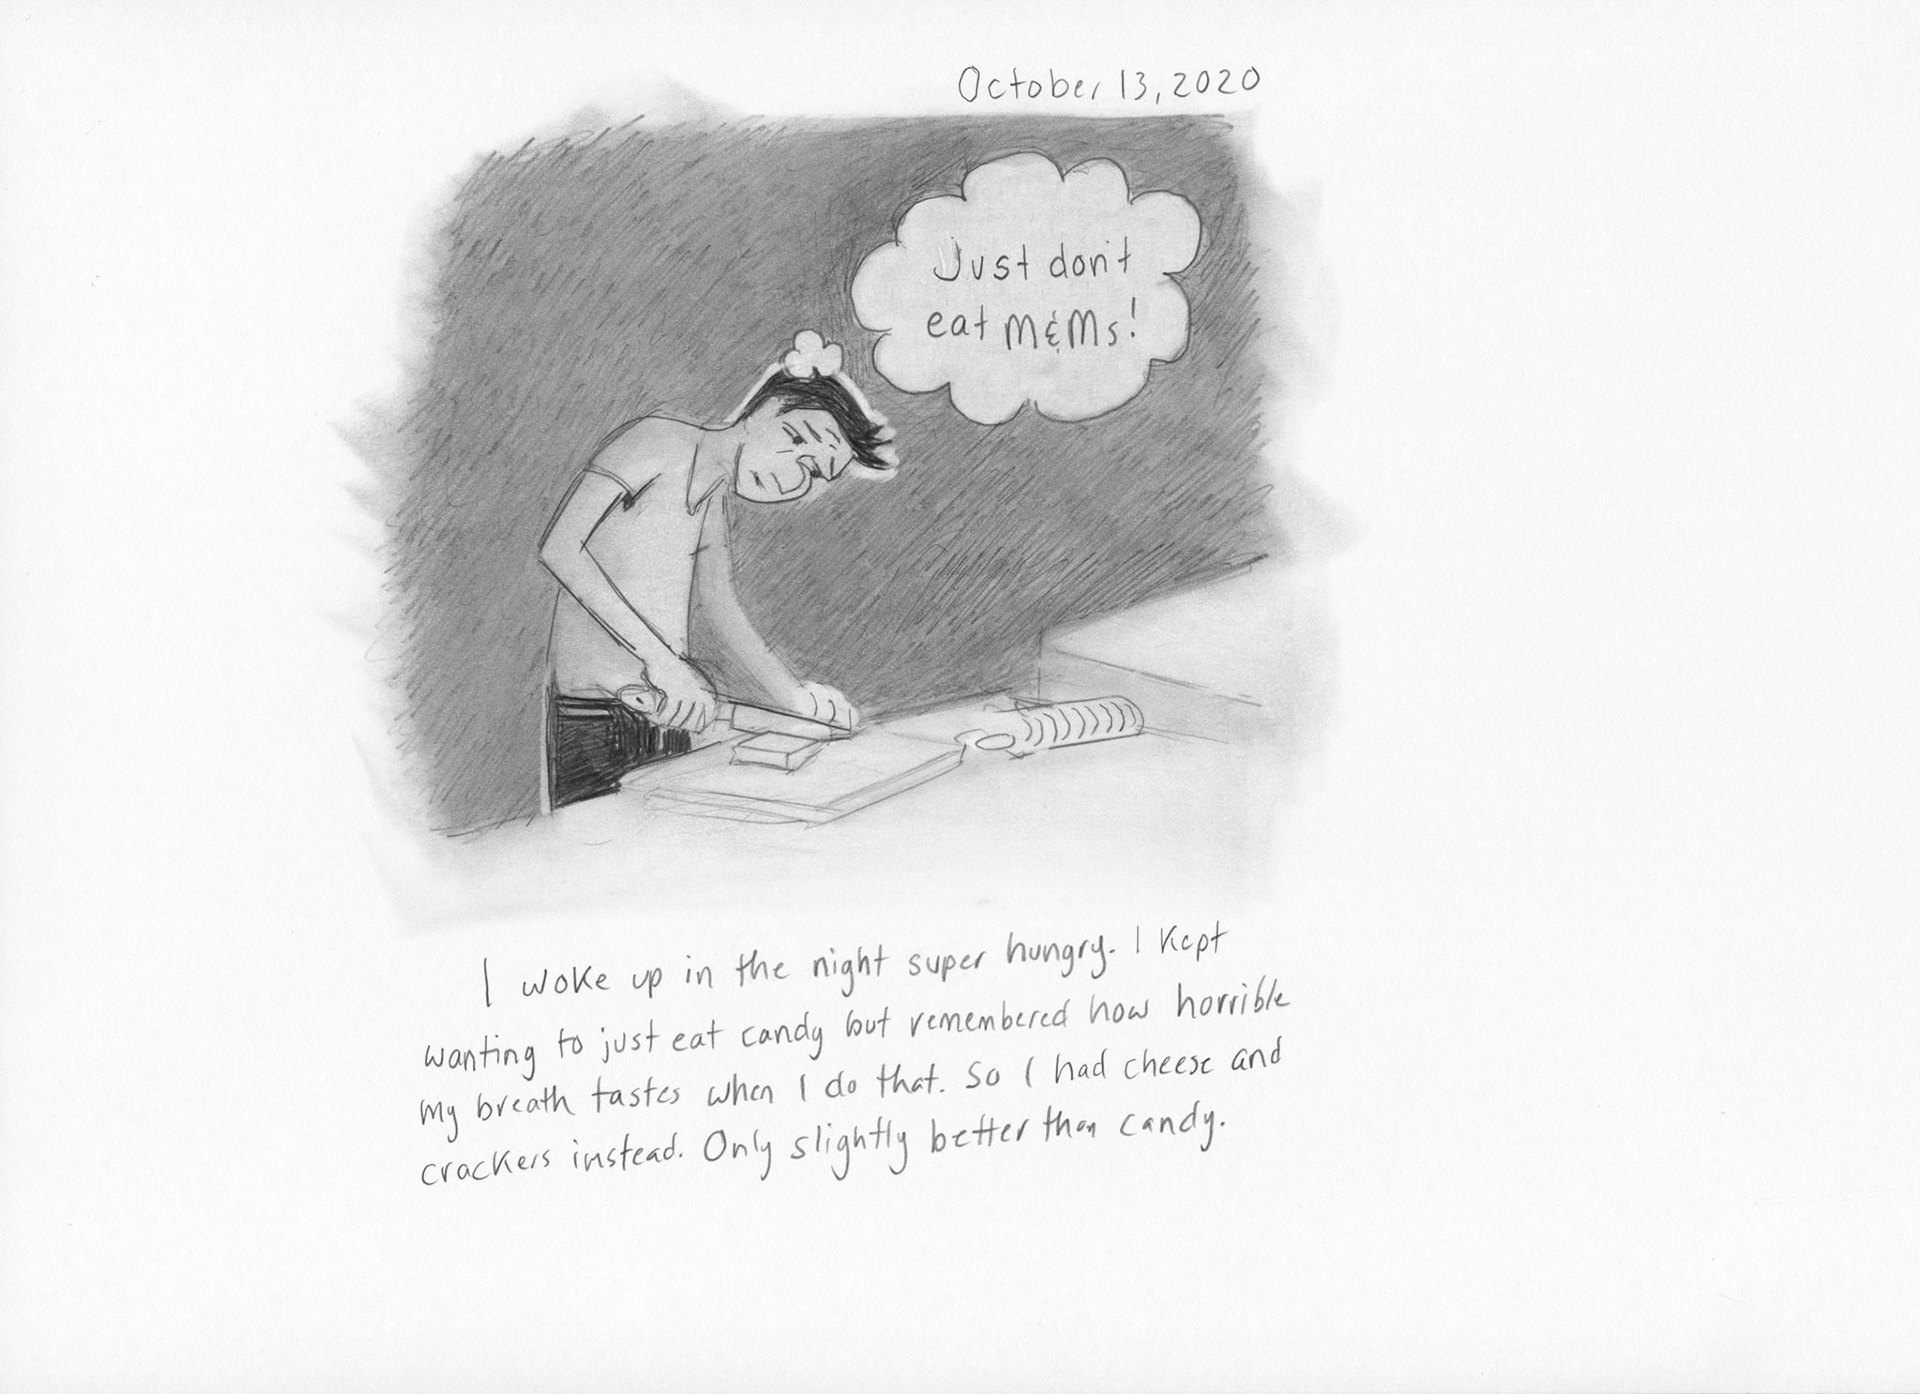 October 13, 2020
Just don't
eat M&Ms!
I woke up in the night super hungry. I kept
wanting to just eat candy but remembered how horrible
my breath tastes when I do that. So I had cheese and
crackers instead. Only slightly better than candy.